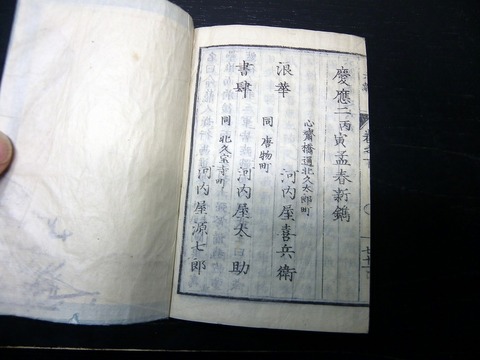 慶應二丙寅孟春新鐫
心齋橋通北久太郎町
浪華 河内屋喜兵衛
同 唐物町
河内屋太助
書肆
同 北久宝寺町
河内屋源七郎